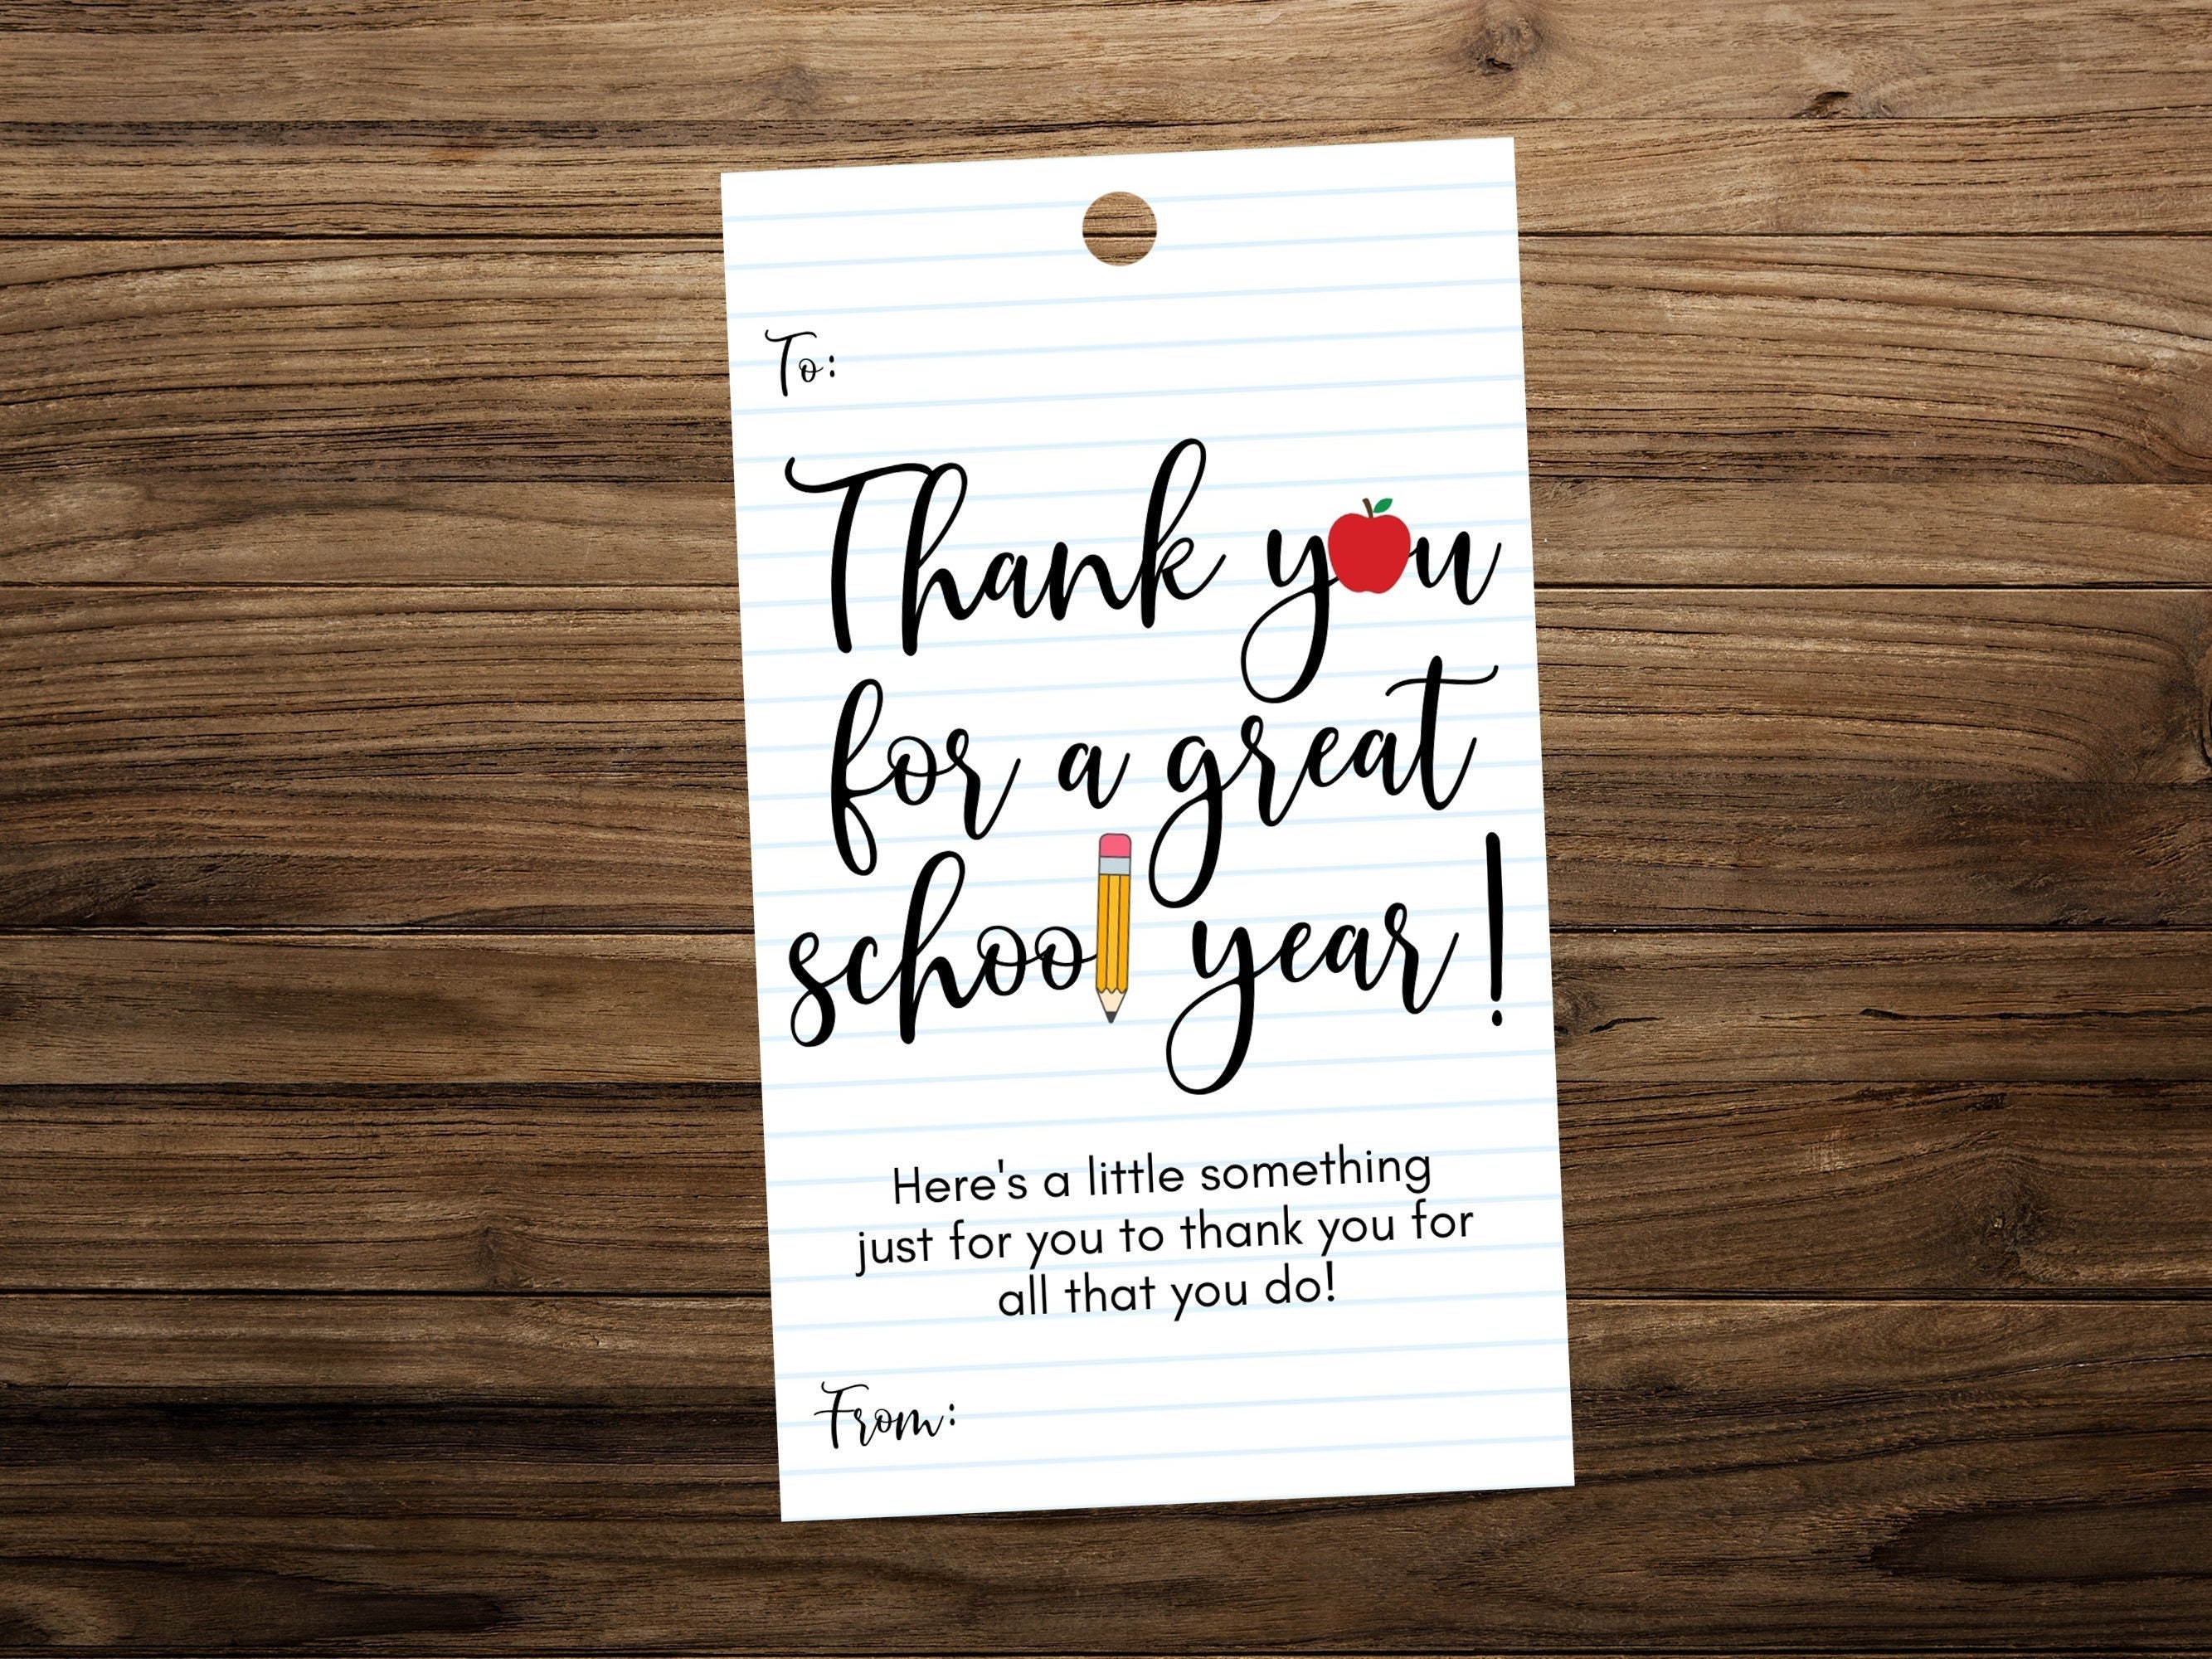 To:
Thank you
for a great
school year!
Here's a little something
just for you to thank you for
all that you do!
From: